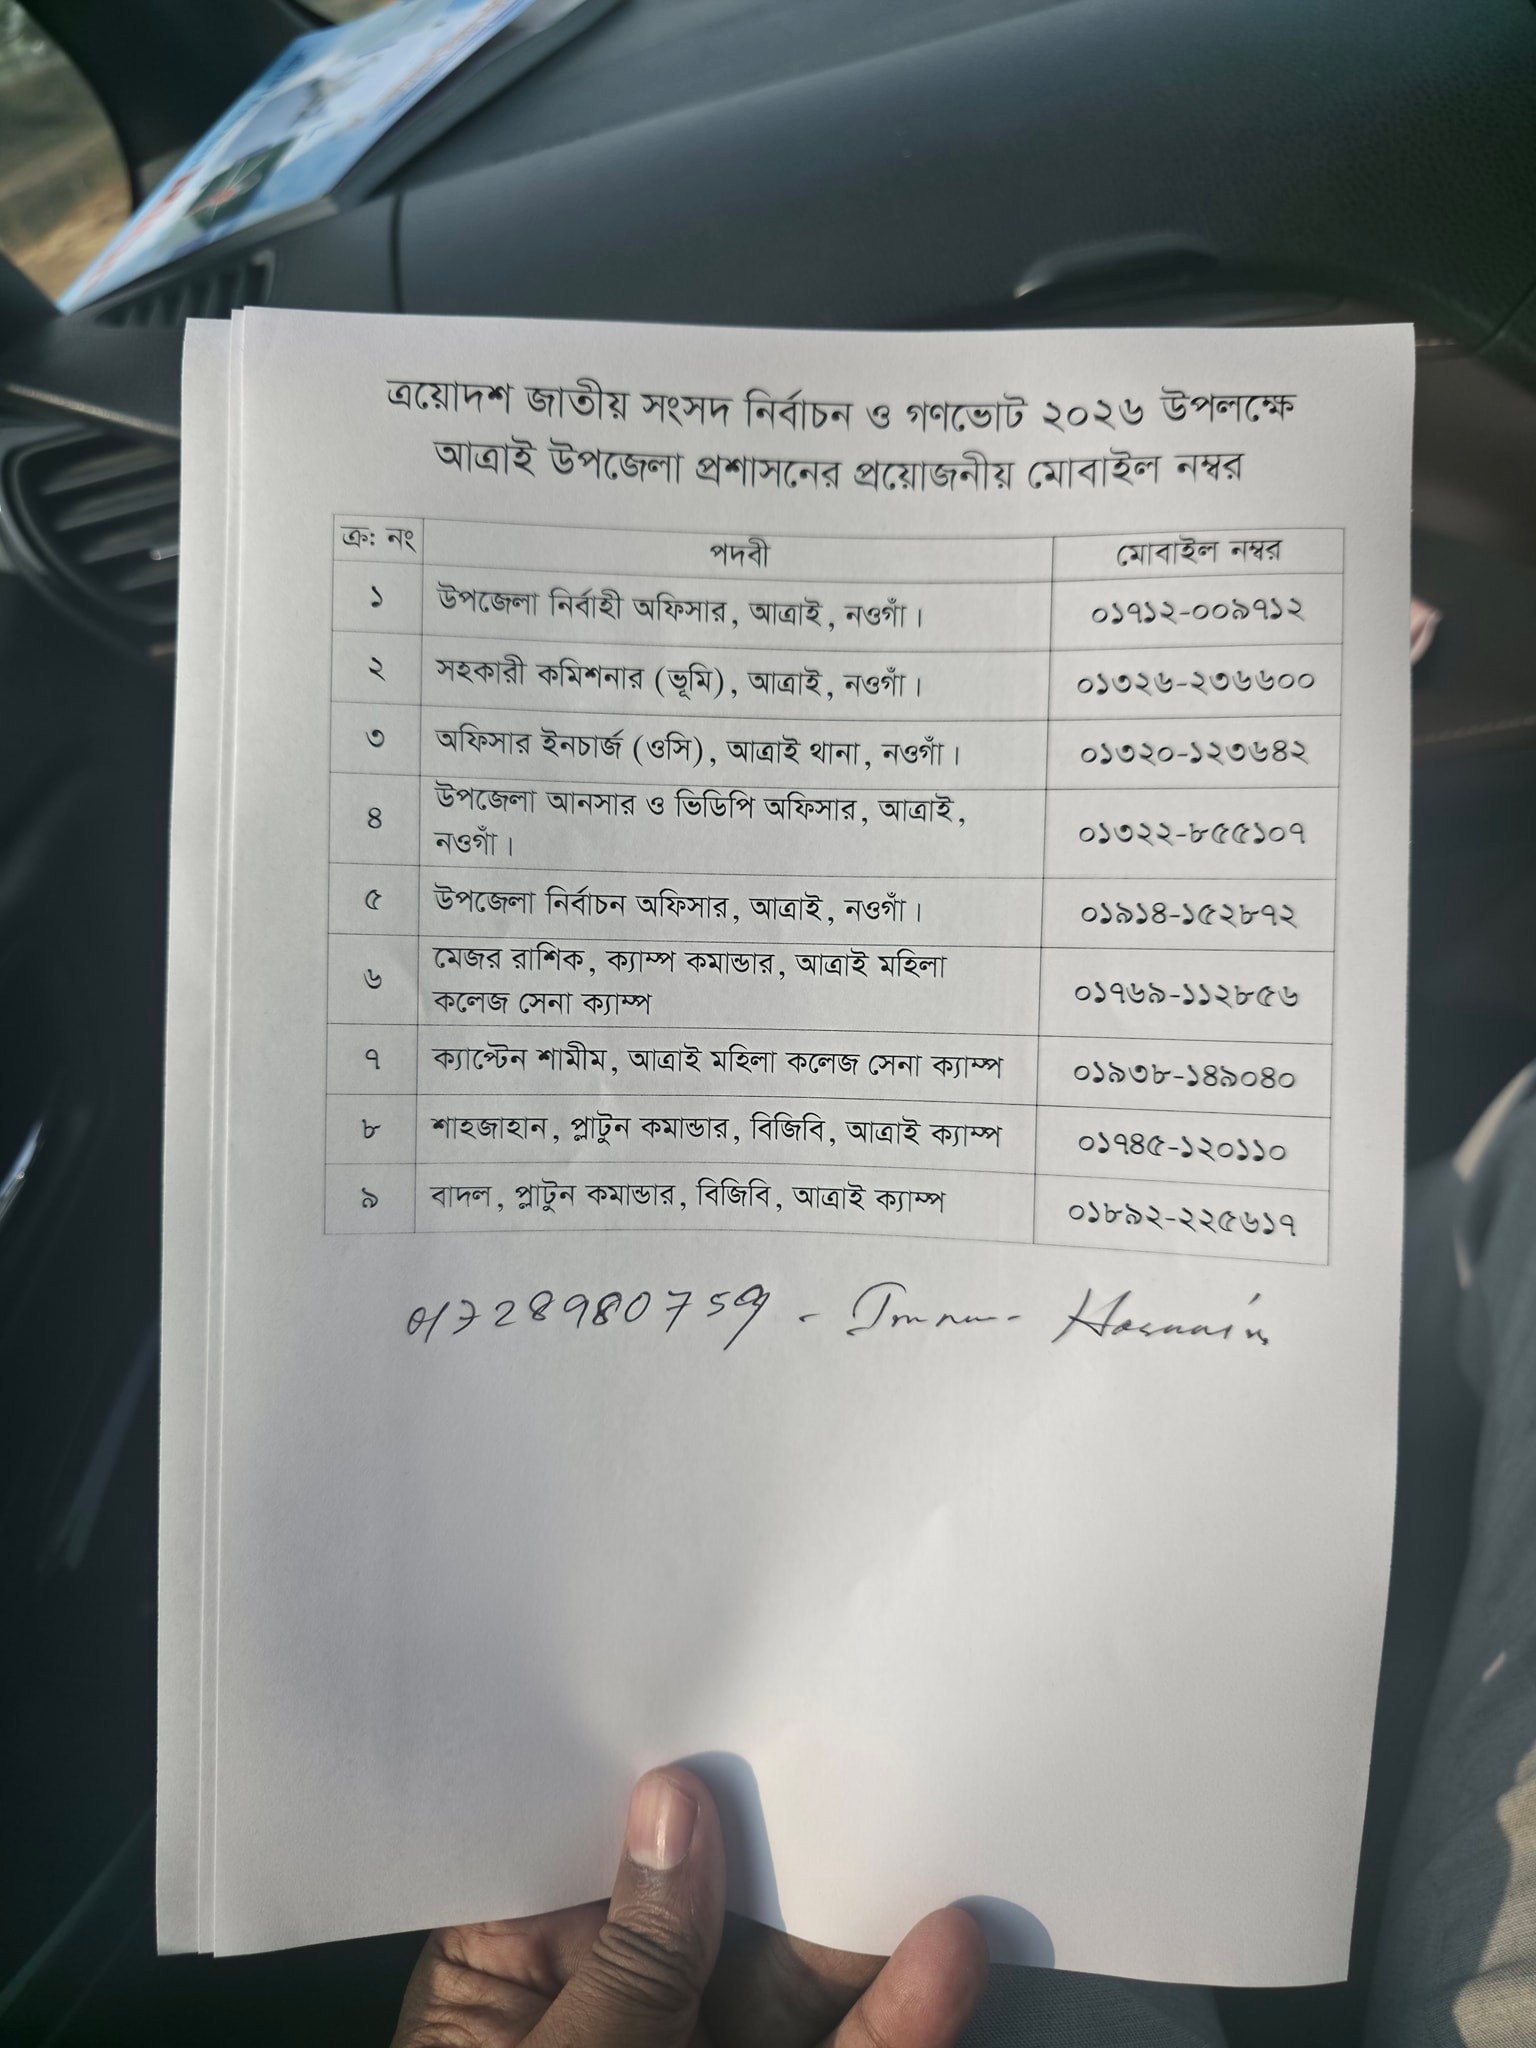 ত্রয়োদশ জাতীয় সংসদ নির্বাচন ও গণভোট ২০২৬ উপলক্ষে
আত্রাই উপজেলা প্রশাসনের প্রয়োজনীয় মোবাইল নম্বর
ক্র: নং পদবী মোবাইল নম্বর
১ উপজেলা নির্বাহী অফিসার, আত্রাই, নওগাঁ। ০১৭১২-০০৯৭১২
২ সহকারী কমিশনার (ভূমি), আত্রাই, নওগাঁ। ০১৩২৬-২৩৬৬০০
৩ অফিসার ইনচার্জ (ওসি), আত্রাই থানা, নওগাঁ। ০১৩২০-১২৩৬৪২
৪ উপজেলা আনসার ও ভিডিপি অফিসার, আত্রাই,
নওগাঁ। ০১৩২২-৮৫৫১০৭
৫ উপজেলা নির্বাচন অফিসার, আত্রাই, নওগাঁ। ০১৯১৪-১৫২৮৭২
৬ মেজর রাশিক, ক্যাম্প কমান্ডার, আত্রাই মহিলা
কলেজ সেনা ক্যাম্প ০১৭৬৯-১১২৮৫৬
৭ ক্যাপ্টেন শামীম, আত্রাই মহিলা কলেজ সেনা ক্যাম্প ০১৯৩৮-১৪৯০৪০
৮ শাহজাহান, প্লাটুন কমান্ডার, বিজিবি, আত্রাই ক্যাম্প ০১৭৪৫-১২০১১০
৯ বাদল, প্লাটুন কমান্ডার, বিজিবি, আত্রাই ক্যাম্প ০১৮৯২-২২৫৬১৭
- Hossain